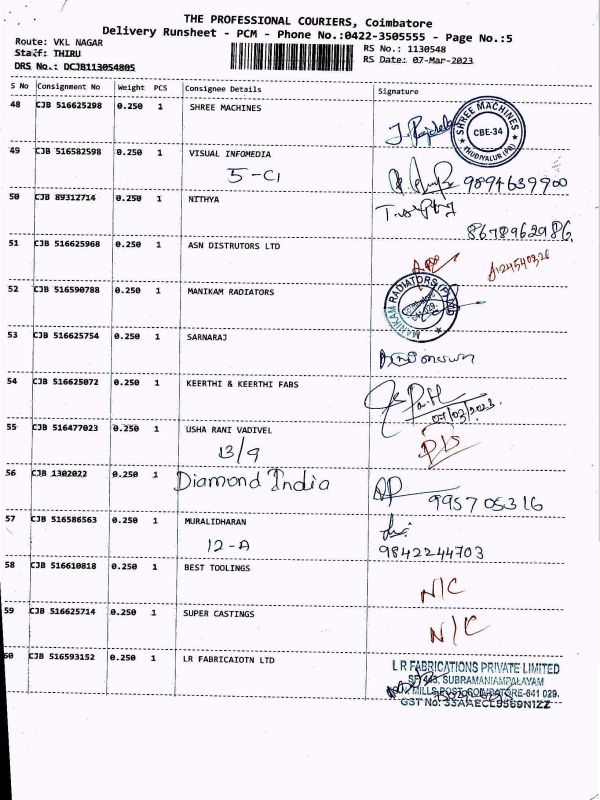 THE PROFESSIONAL COURIERS, Coimbatore
Delivery Runsheet - PCM - Phone No.:0422-3505555 - Page No.:5
Route: VKL NAGAR
RS No.: 1130548
Staff: THIRU
RS Date: 07-Mar-2023
DRS No.: DCJB113054805
S No Consignment No Weight PCS Consignee Details Signature
48 CJB 516625298 0.250 1 SHREE MACHINES
SHREE MACHINES
CBE-34
THUDIYALUR (PO)
49 CJB 516582598 0.250 1 VISUAL INFOMEDIA
5-C1
9894639900
50 CJB 89312714 0.250 1 NITHYA
8678962986
51 CJB 516625968 0.250 1 ASN DISTRUTORS LTD
52 CJB 516590788 0.250 1 MANIKAM RADIATORS
MANIKAM RADIATORS (P) LTD
53 CJB 516625754 0.250 1 SARNARAJ
54 CJB 516625072 0.250 1 KEERTHI & KEERTHI FABS
07/03/2023
55 CJB 516477023 0.250 1 USHA RANI VADIVEL
13/9
D/S
56 CJB 1302022 0.250 1 Diamond India
995705316
57 CJB 516586563 0.250 1 MURALIDHARAN
12-A
9842244703
58 CJB 516610818 0.250 1 BEST TOOLINGS
N/C
59 CJB 516625714 0.250 1 SUPER CASTINGS
N/C
60 CJB 516593152 0.250 1 LR FABRICAIOTN LTD
L R FABRICATIONS PRIVATE LIMITED
SUBRAMANIAMPALAYAM
MILLS POST, COIMBATORE-641 029.
GST No: 33AAECL9569N1ZZ